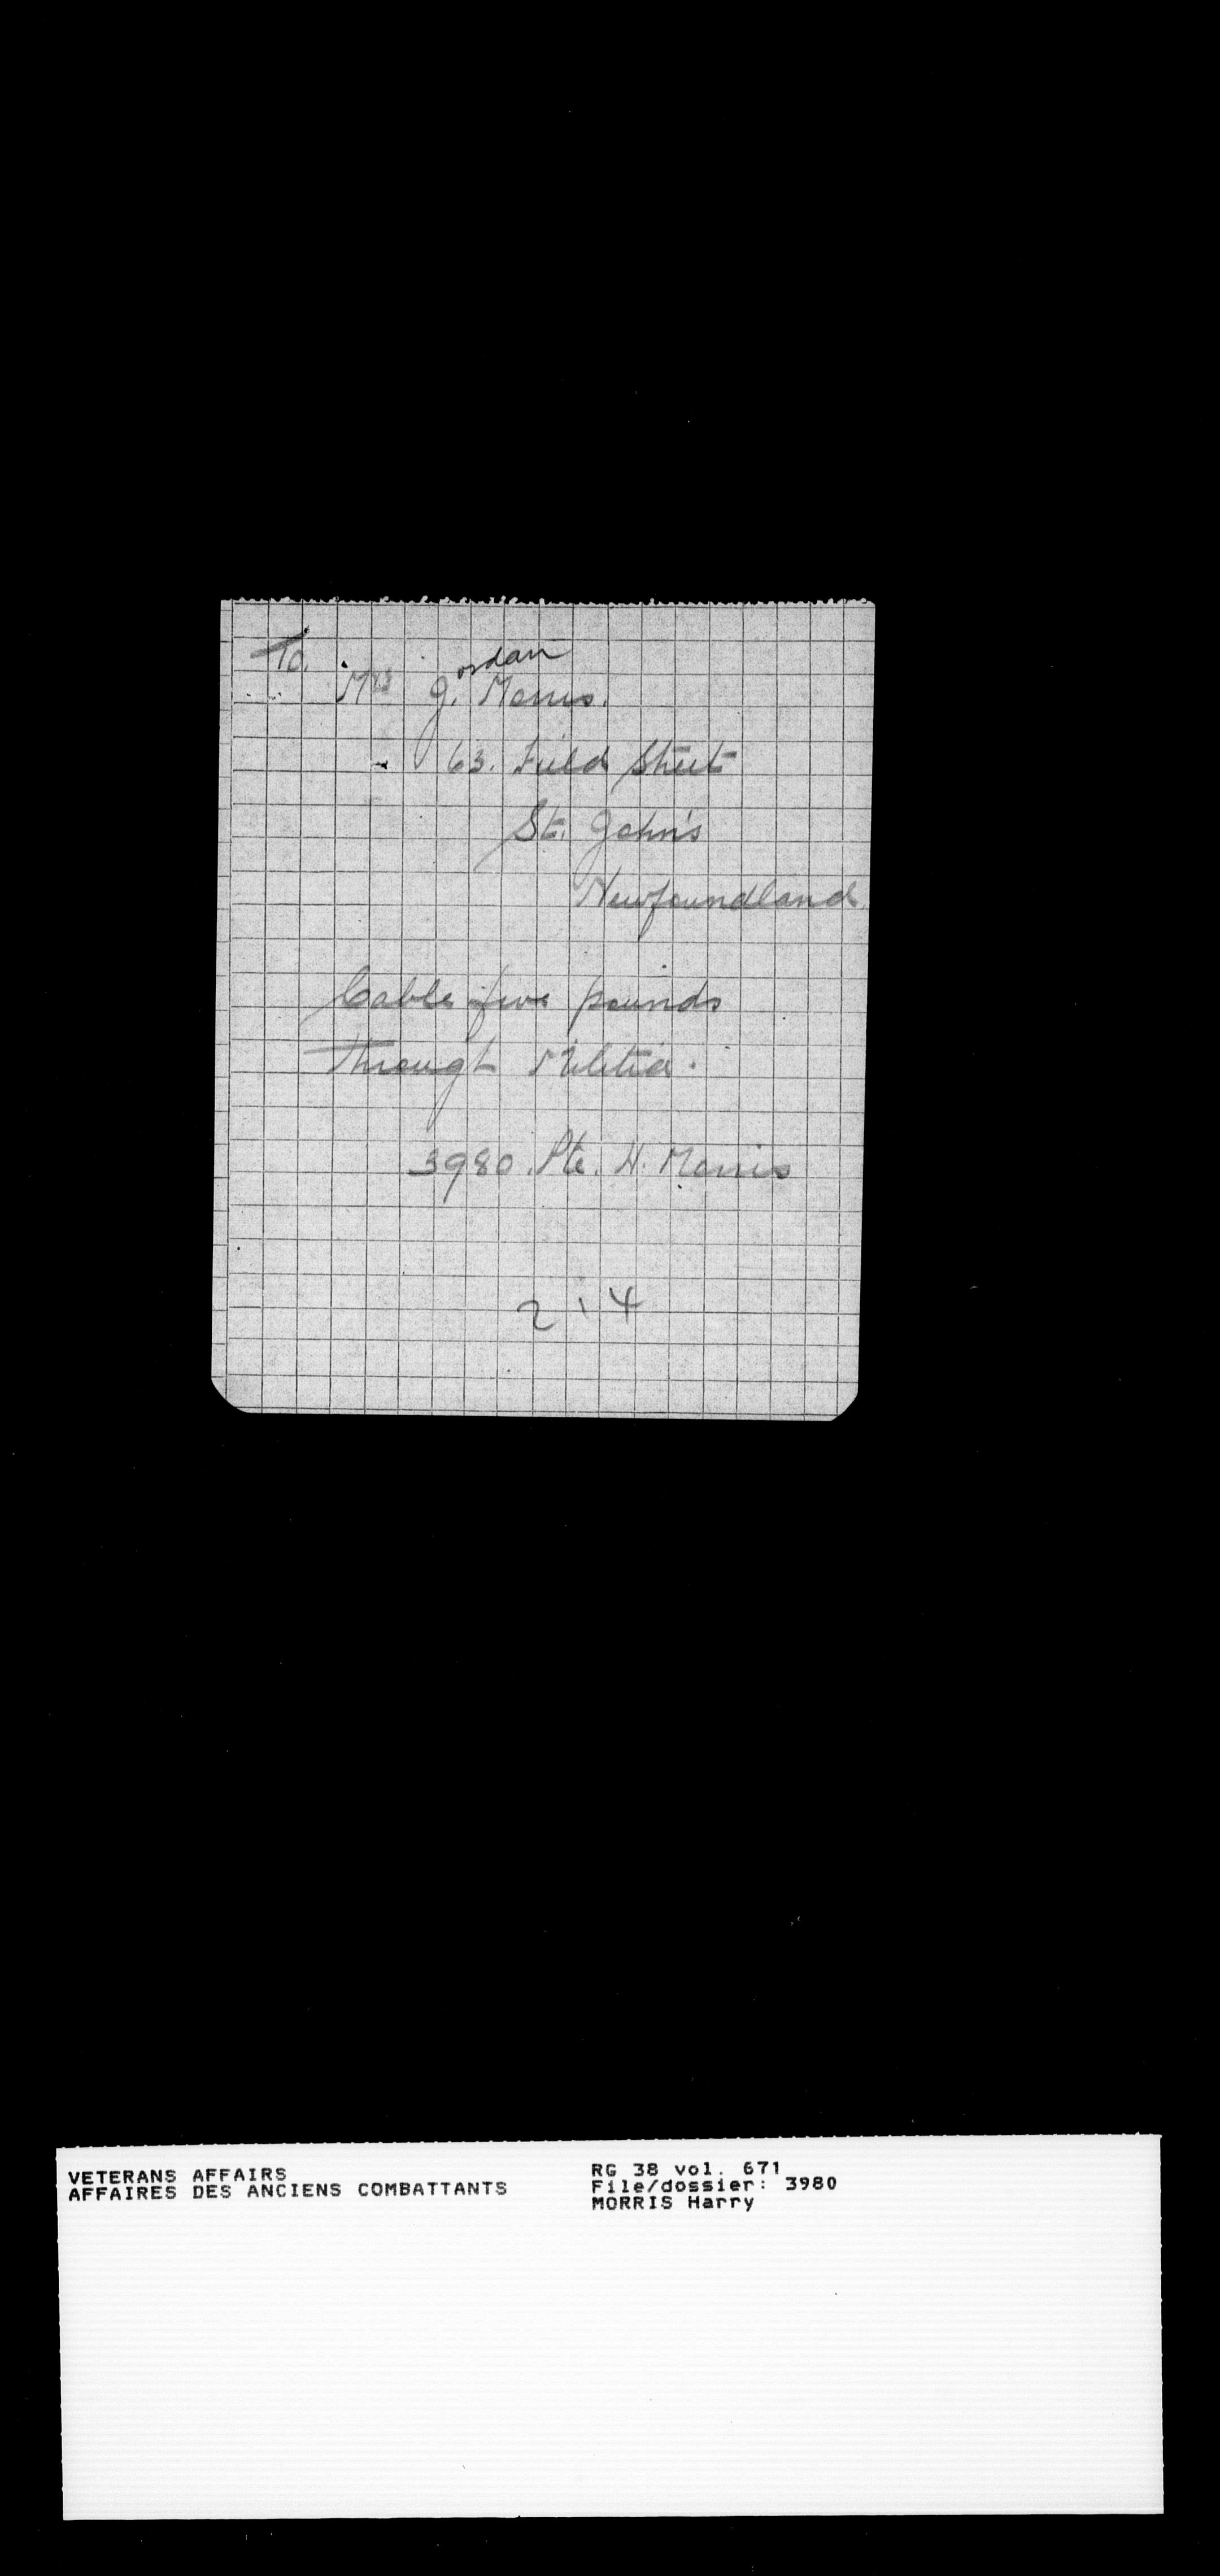 To.
ordan
Mrs J. Morris.
63. Field Street
St. John's
Newfoundland.
Cable five pounds
through Militia.
3980. Pte. H. Morris
214
VETERANS AFFAIRS
AFFAIRES DES ANCIENS COMBATTANTS
RG 38 vol. 671
File/dossier: 3980
MORRIS Harry